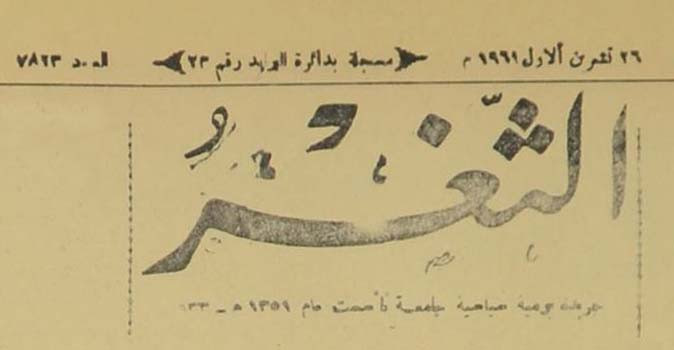 ٢٦ تشرين الاول ١٩٦١ م مسجلة بدائرة البريد رقم ٢٣ العدد ٧٨٢٣
الثَّغْرُ
جريدة يومية صباحية جامعة تأسست عام ١٣٥٩ هـ - ٩٣٣